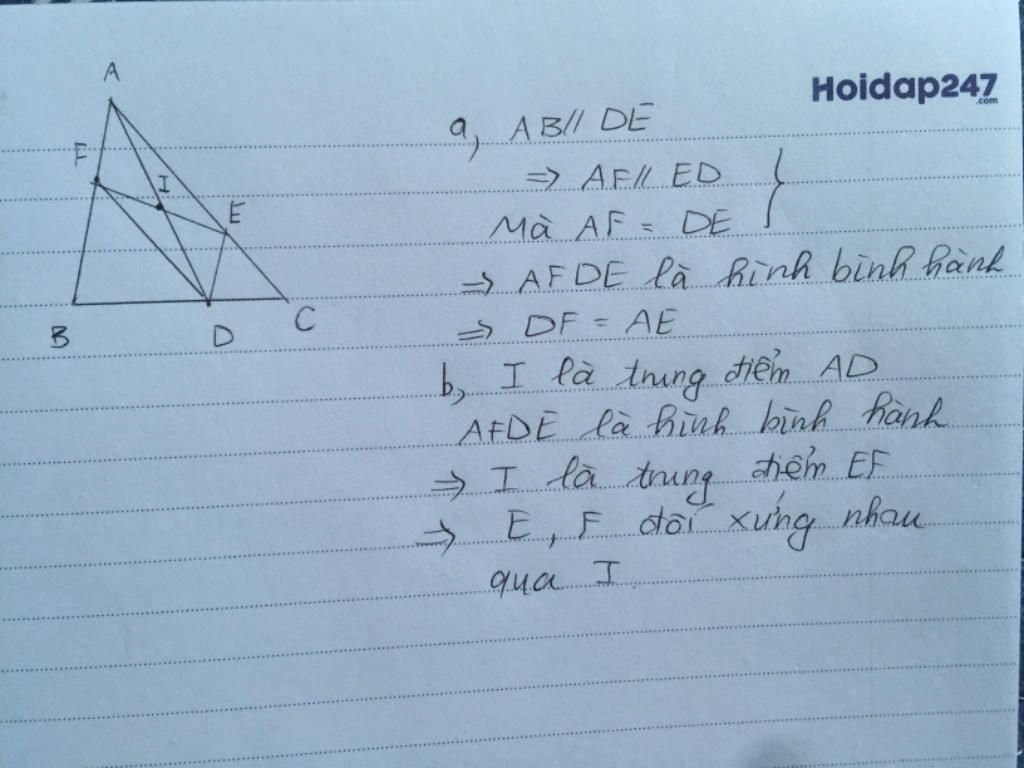 Hoidap247
.com
A
F
I
E
B
D
C
a, AB // DE
=> AF // ED
Mà AF = DE
=> AFDE là hình bình hành
=> DF = AE
b, I là trung điểm AD
AFDE là hình bình hành
=> I là trung điểm EF
=> E, F đối xứng nhau
qua I.